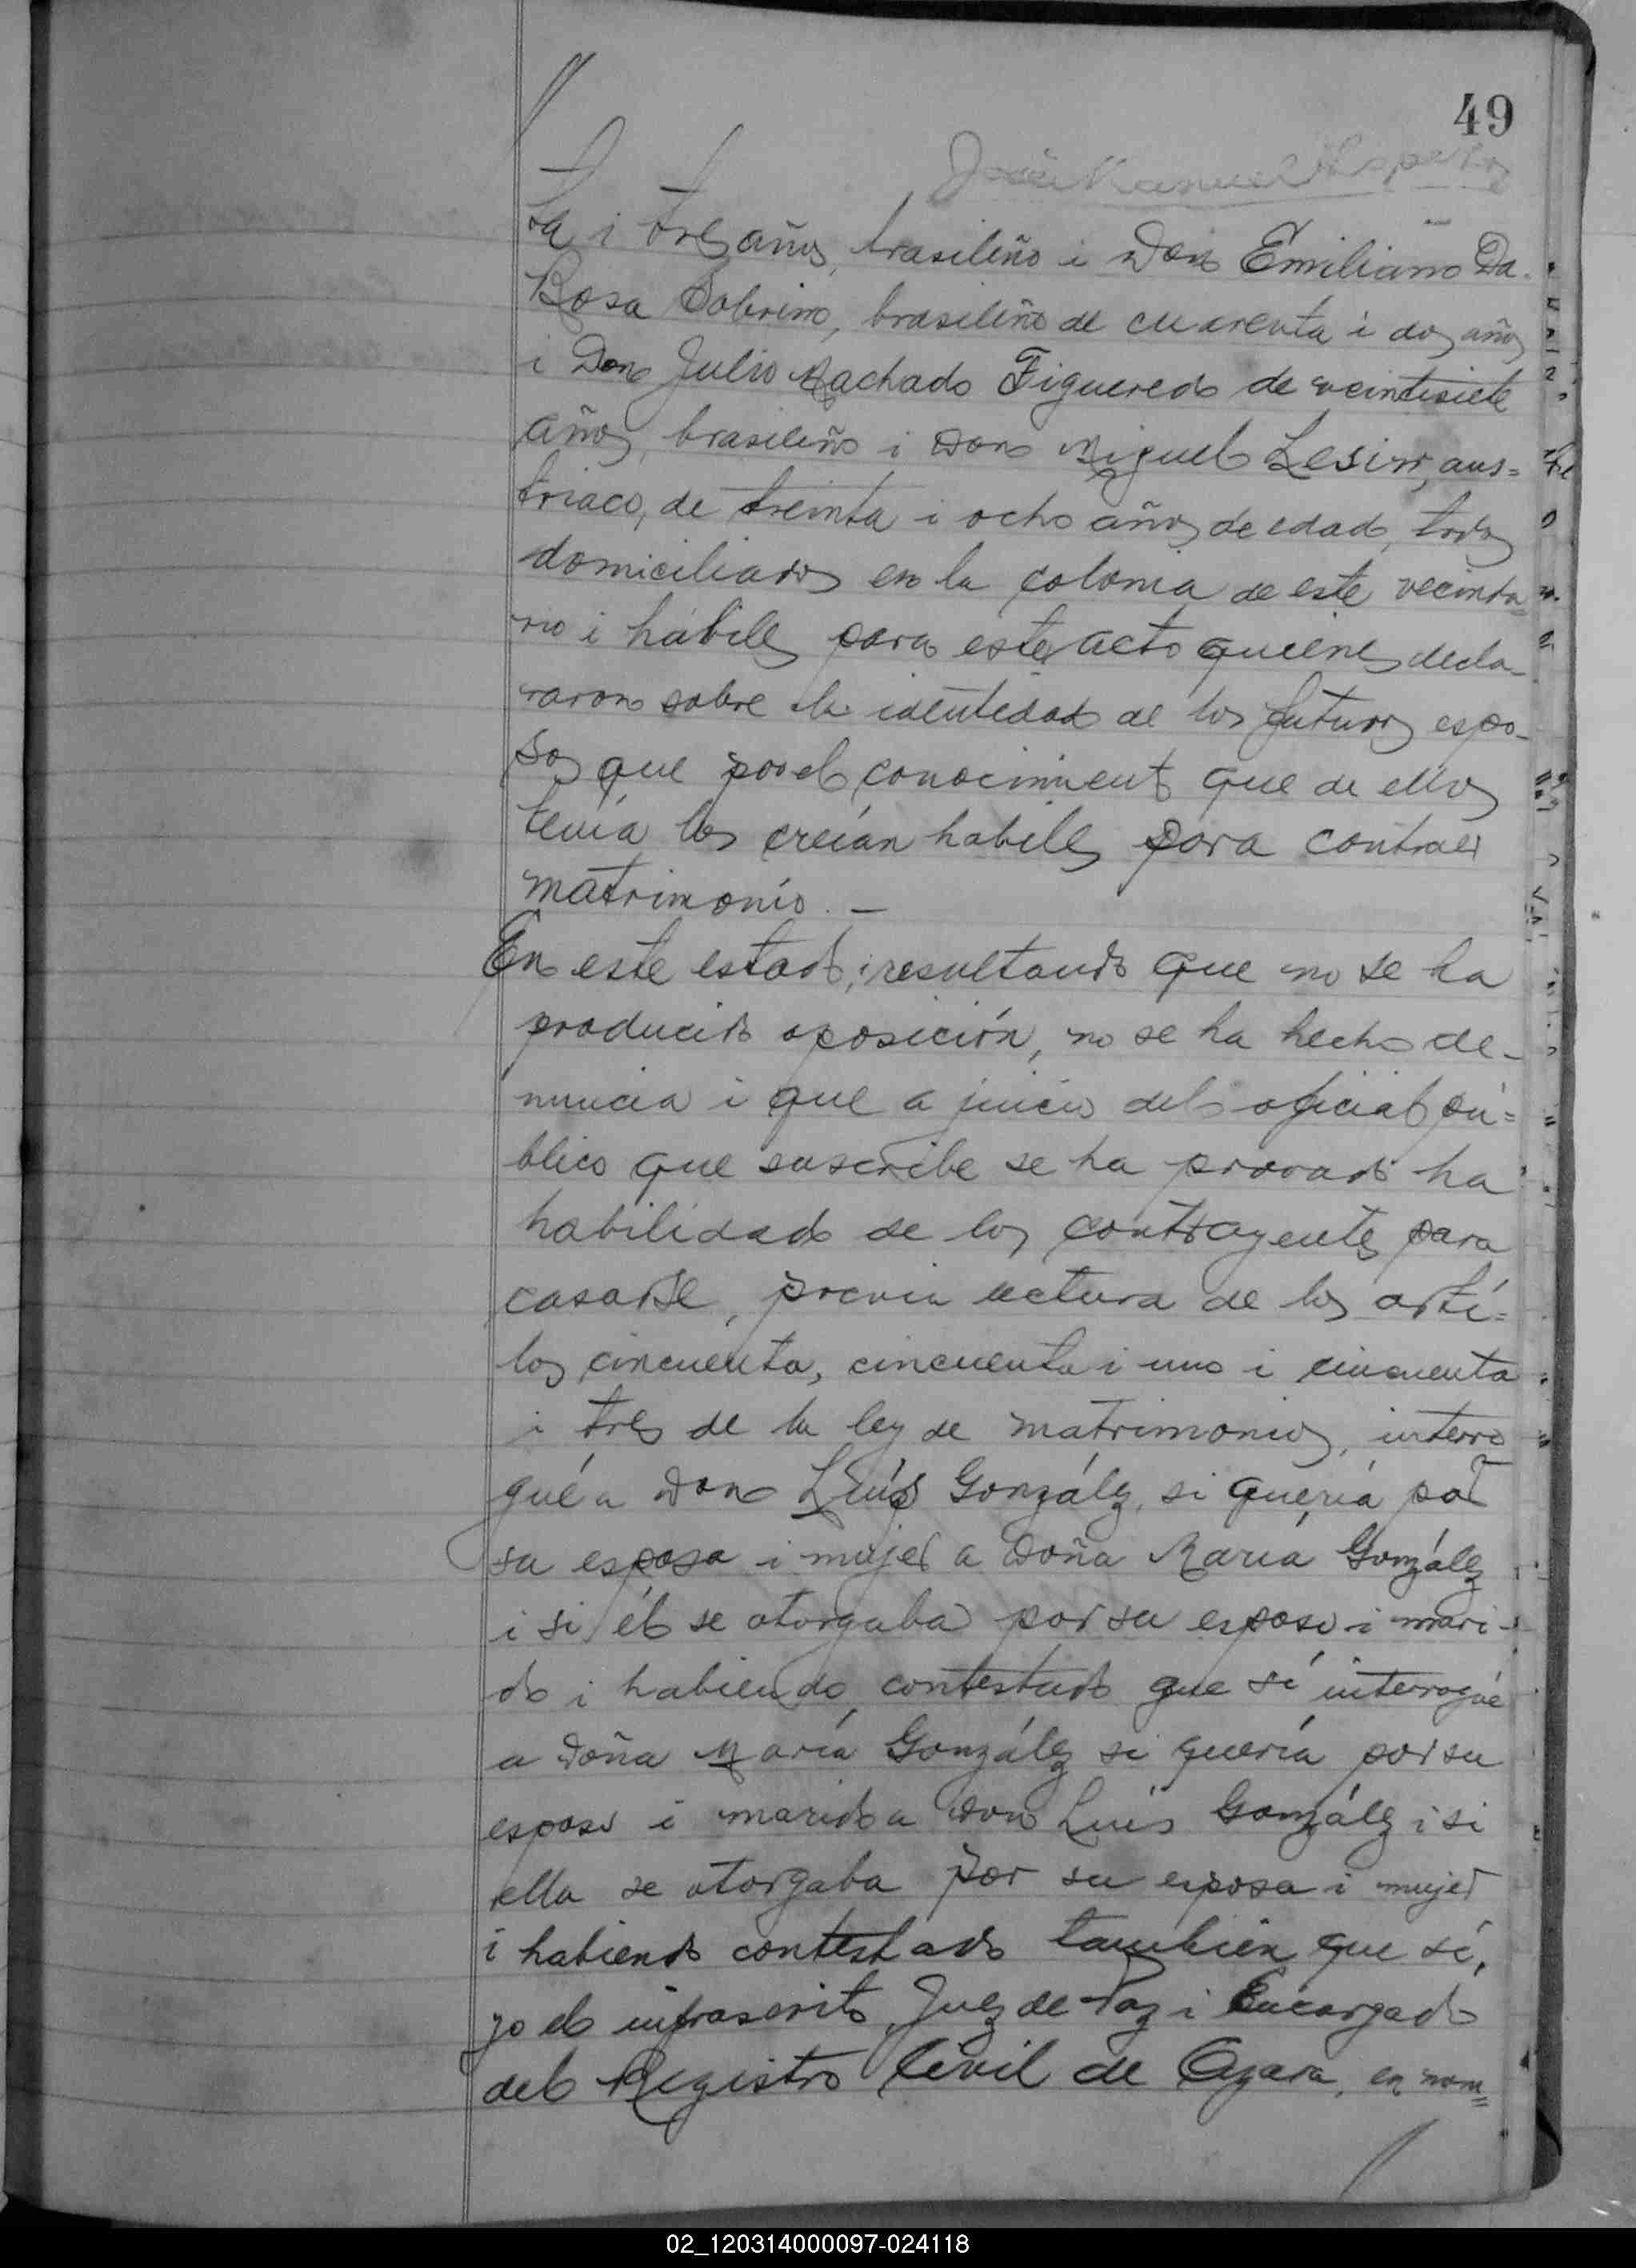 49
José Manuel
ta i tres años, brasileño i Don Emiliano Da
Rosa Sobrino, brasileño de cuarenta i dos años
i Don Julio Machado Figueredo de veintisiete
años, brasileño i Don Miguel Lesiw, aus=
triaco, de treinta i ocho años de edad, todos
domiciliados en la colonia de este vecinda=
rio i hábiles para este acto quienes decla-
raron sobre la identidad de los futuros espo-
sos que por el conocimiento que de ellos
tenía los creían habiles para contraer
matrimonio. —
En este estado, i resultando que no se ha
producido oposición, no se ha hecho de-
nuncia i que a juicio del oficial pú=
blico que suscribe se ha provado ha
habilidad de los contrayentes para
casarse, previa lectura de los artí=
los cincuenta, cincuenta i uno i cincuenta
i tres de la ley de matrimonios, interro
gué a Don Luís González, si quería por
su esposa i mujer a Doña María González
i si él se otorgaba por su esposo i mari-
do i habiendo contestado que sí interrogué
a Doña María González si quería por su
esposo i marido a Don Luís González i si
ella se otorgaba por su esposa i mujer
i habiendo contestado también que sí,
yo el infrascrito Juez de Paz i Encargado
del Registro Civil de Azara, en nom=
02_120314000097-024118